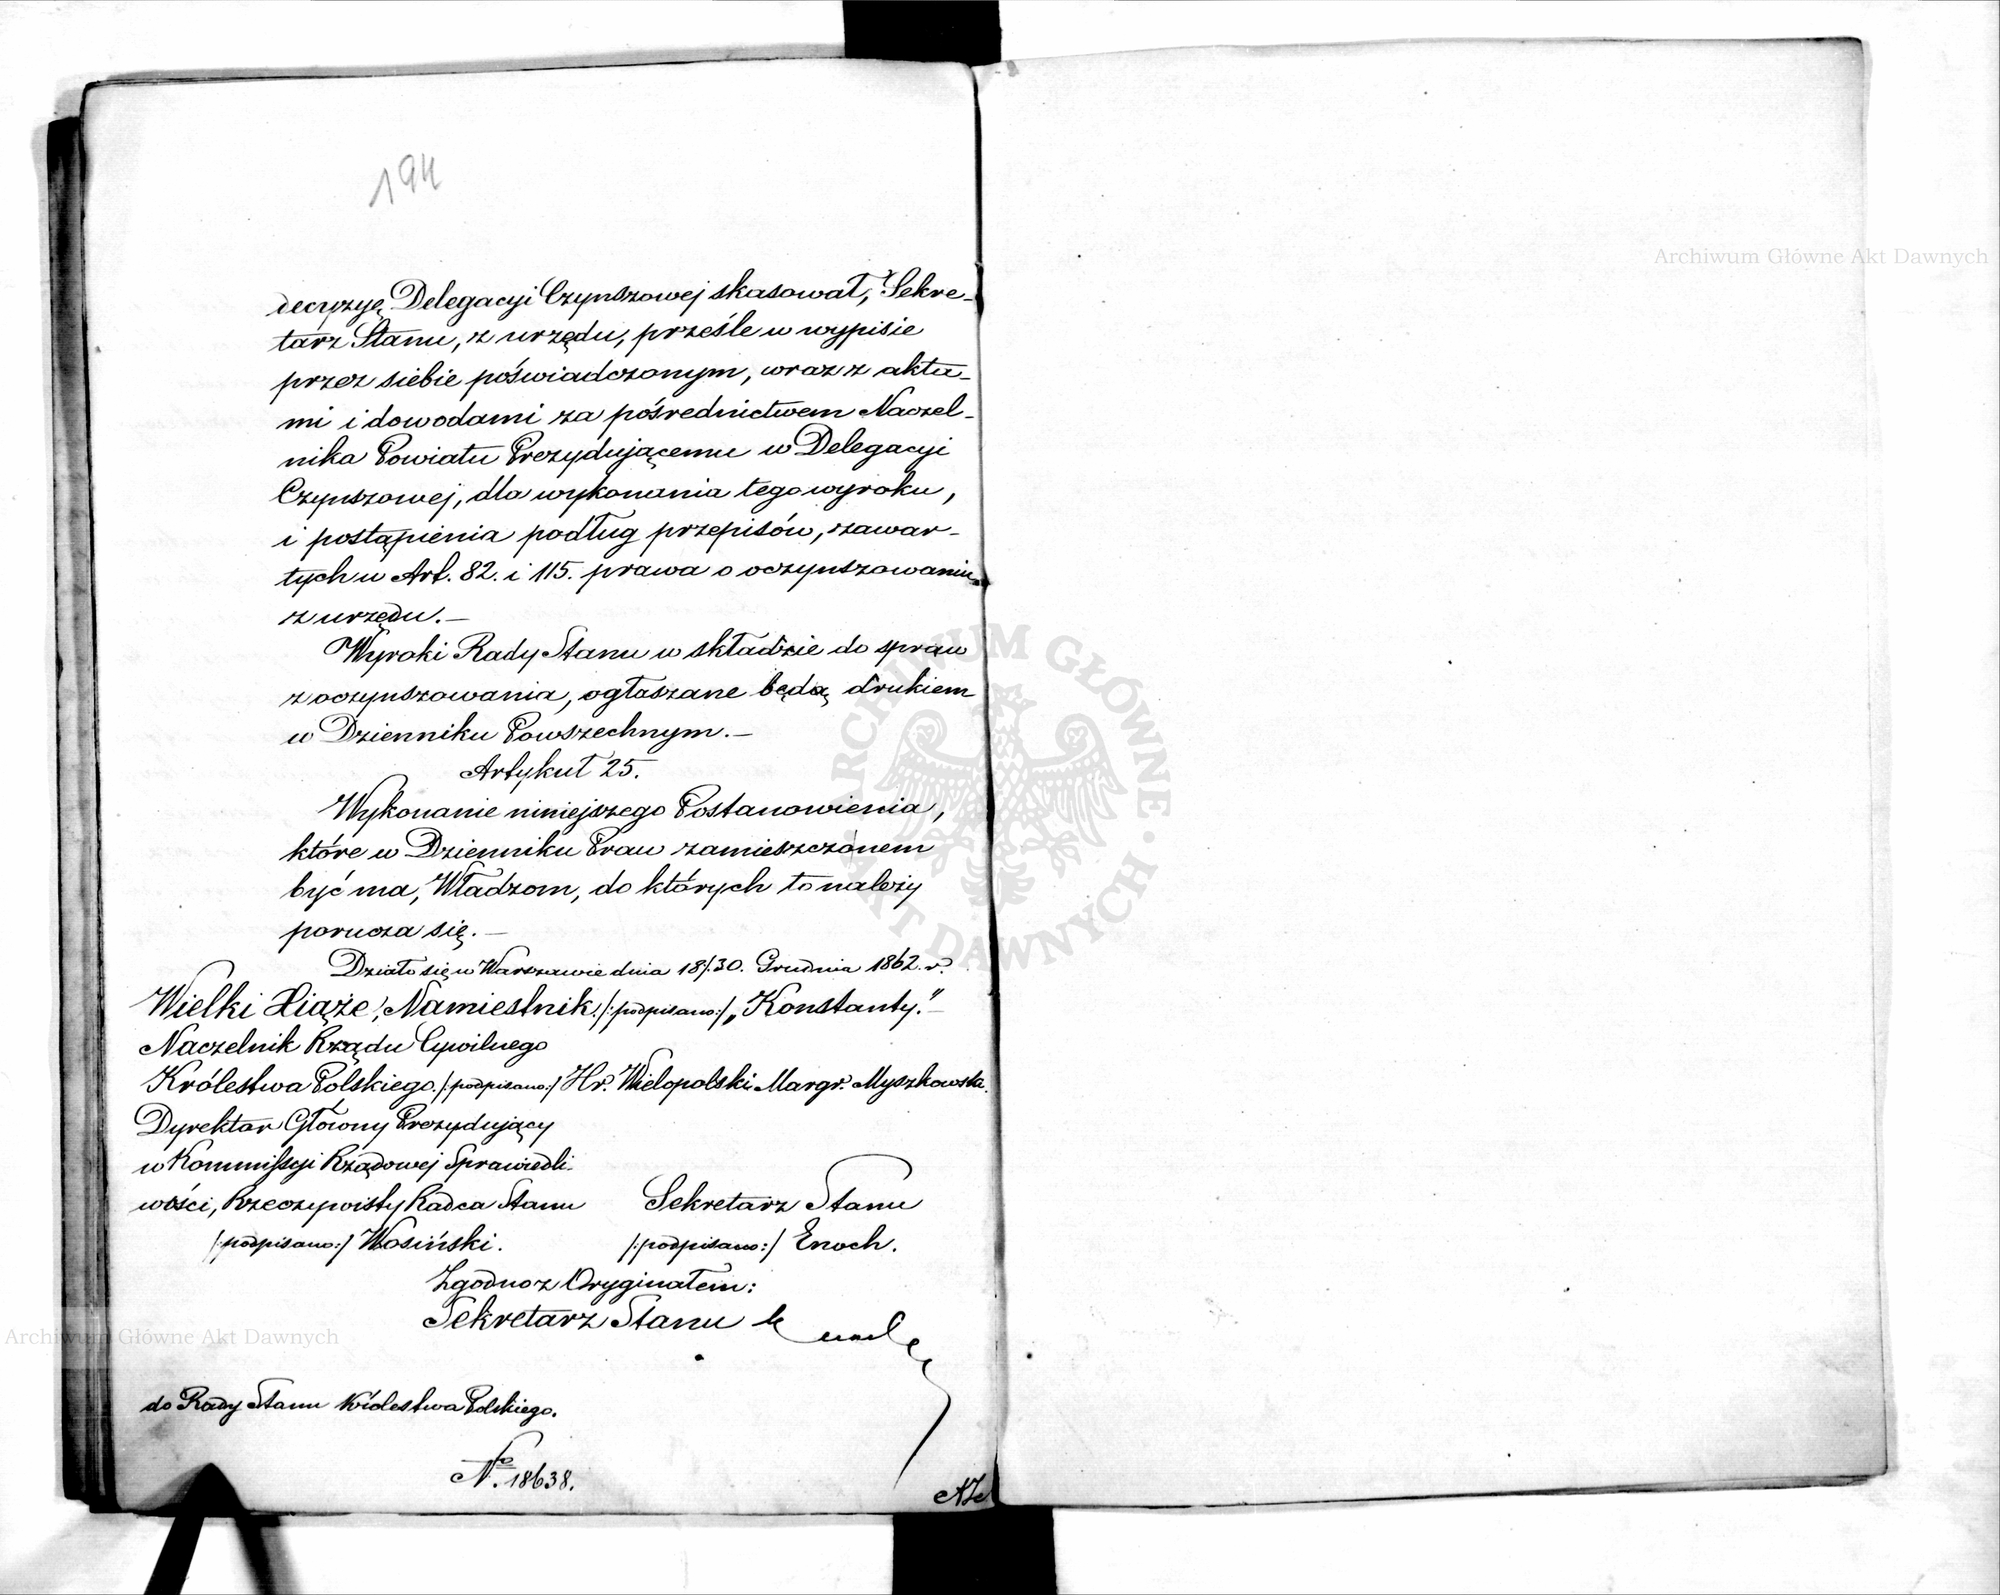 194
decyzyę Delegacyi Czynszowej skasował, Sekre-
tarz Stanu, z urzędu, prześle w wypisie
przez siebie poświadczonym, wraz z akta-
mi i dowodami za pośrednictwem Naczel-
nika Powiatu Prezydującemu w Delegacyi
Czynszowej, dla wykonania tego wyroku,
i postąpienia podług przepisów, zawar-
tych w Art. 82. i 115. prawa o oczynszowaniu
z urzędu.—
Wyroki Rady Stanu w składzie do spraw
z oczynszowania, ogłaszane będą drukiem
w Dzienniku Powszechnym.—
Artykuł 25.
Wykonanie niniejszego Postanowienia,
które w Dzienniku Praw zamieszczonem
być ma, Władzom, do których to należy
porucza się.—
Działo się w Warszawie dnia 18/30. Grudnia 1862. r.
Wielki Xiąże, Namiestnik /:podpisano:/ „Konstanty."—
Naczelnik Rządu Cywilnego
Królestwa Polskiego. /:podpisano:/ Hr. Wielopolski Margr. Myszkowski.
Dyrektor Główny Prezydujący
w Kommissyi Rządowej Sprawiedli-
wości, Rzeczywisty Radca Stanu
/:podpisano:/ Wosiński.
Sekretarz Stanu
/:podpisano:/ Enoch.
Zgodno z Oryginałem:
Sekretarz Stanu
do Rady Stanu Królestwa Polskiego.
No. 18638.
Archiwum Główne Akt Dawnych
Archiwum Główne Akt Dawnych
ARCHIWUM GŁÓWNE AKT DAWNYCH